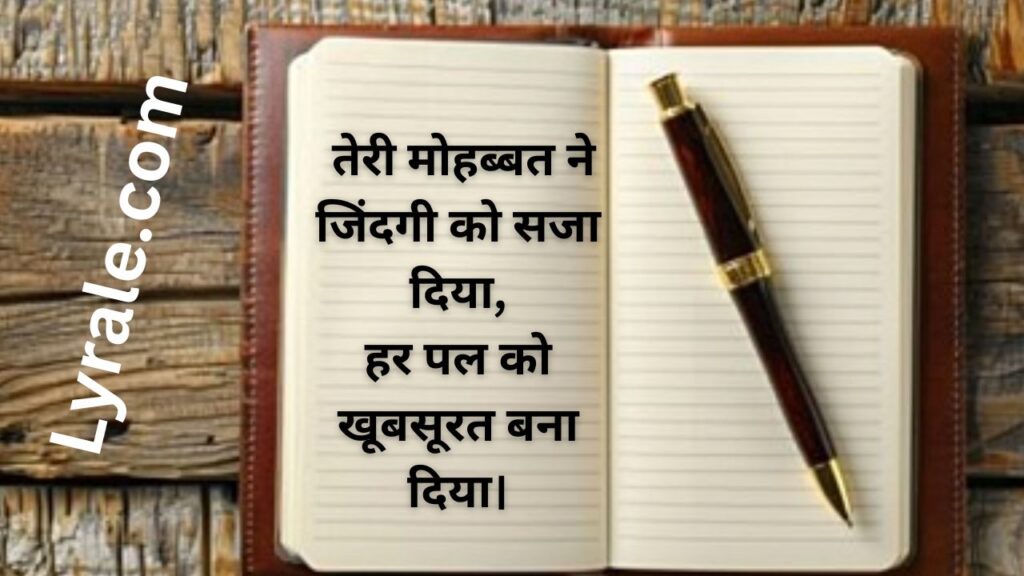 Lyrale.com
तेरी मोहब्बत ने
जिंदगी को सजा
दिया,
हर पल को
खूबसूरत बना
दिया।